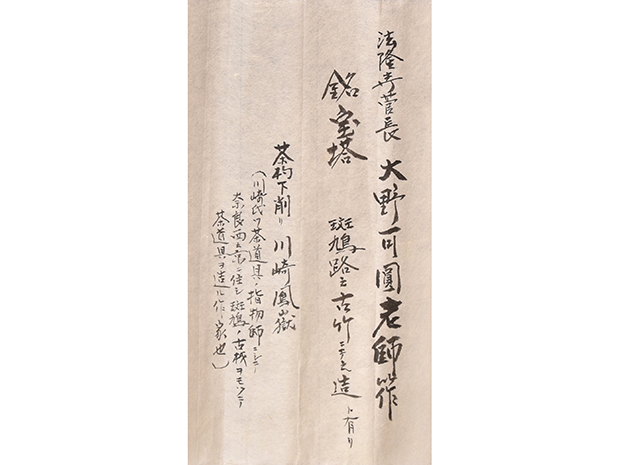 法隆寺菅長 大野可圓老師作
銘 宝塔 斑鳩路云古竹ニテ之造ト有リ
茶杓下削リ 川崎鳳嶽
(川崎氏ワ茶道具ノ指物師ニシテ
奈良西ニ住シ斑鳩ノ古材ヲモツテ
茶道具ヲ造ル作家也)